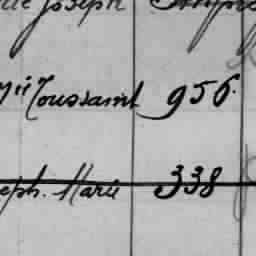 Joseph
Toussaint 956.
eph. Marie 338